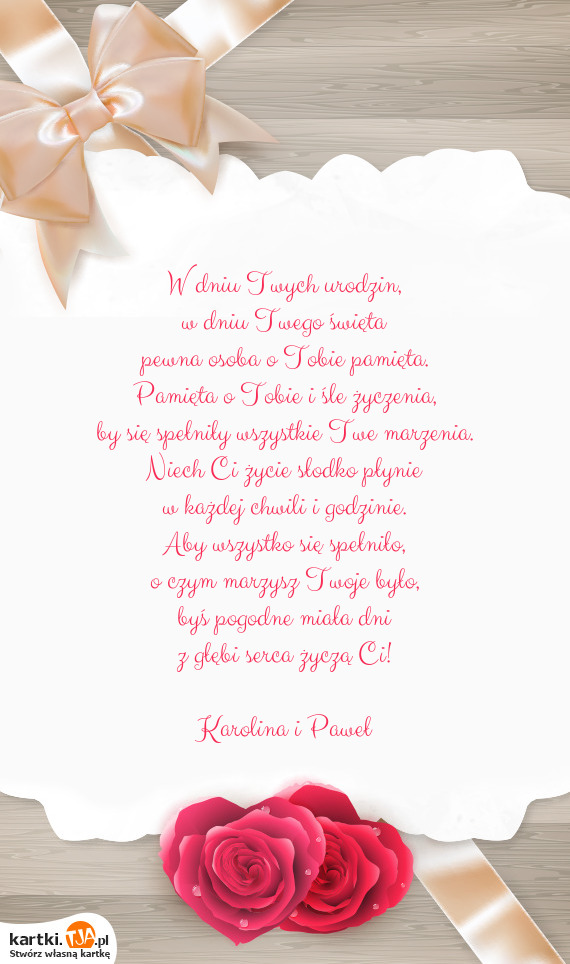 W dniu Twych urodzin,
w dniu Twego święta
pewna osoba o Tobie pamięta.
Pamięta o Tobie i śle życzenia,
by się spełniły wszystkie Twe marzenia.
Niech Ci życie słodko płynie
w każdej chwili i godzinie.
Aby wszystko się spełniło,
o czym marzysz Twoje było,
byś pogodne miała dni
z głębi serca życzą Ci!
Karolina i Paweł
kartki.TJA.pl
Stwórz własną kartkę